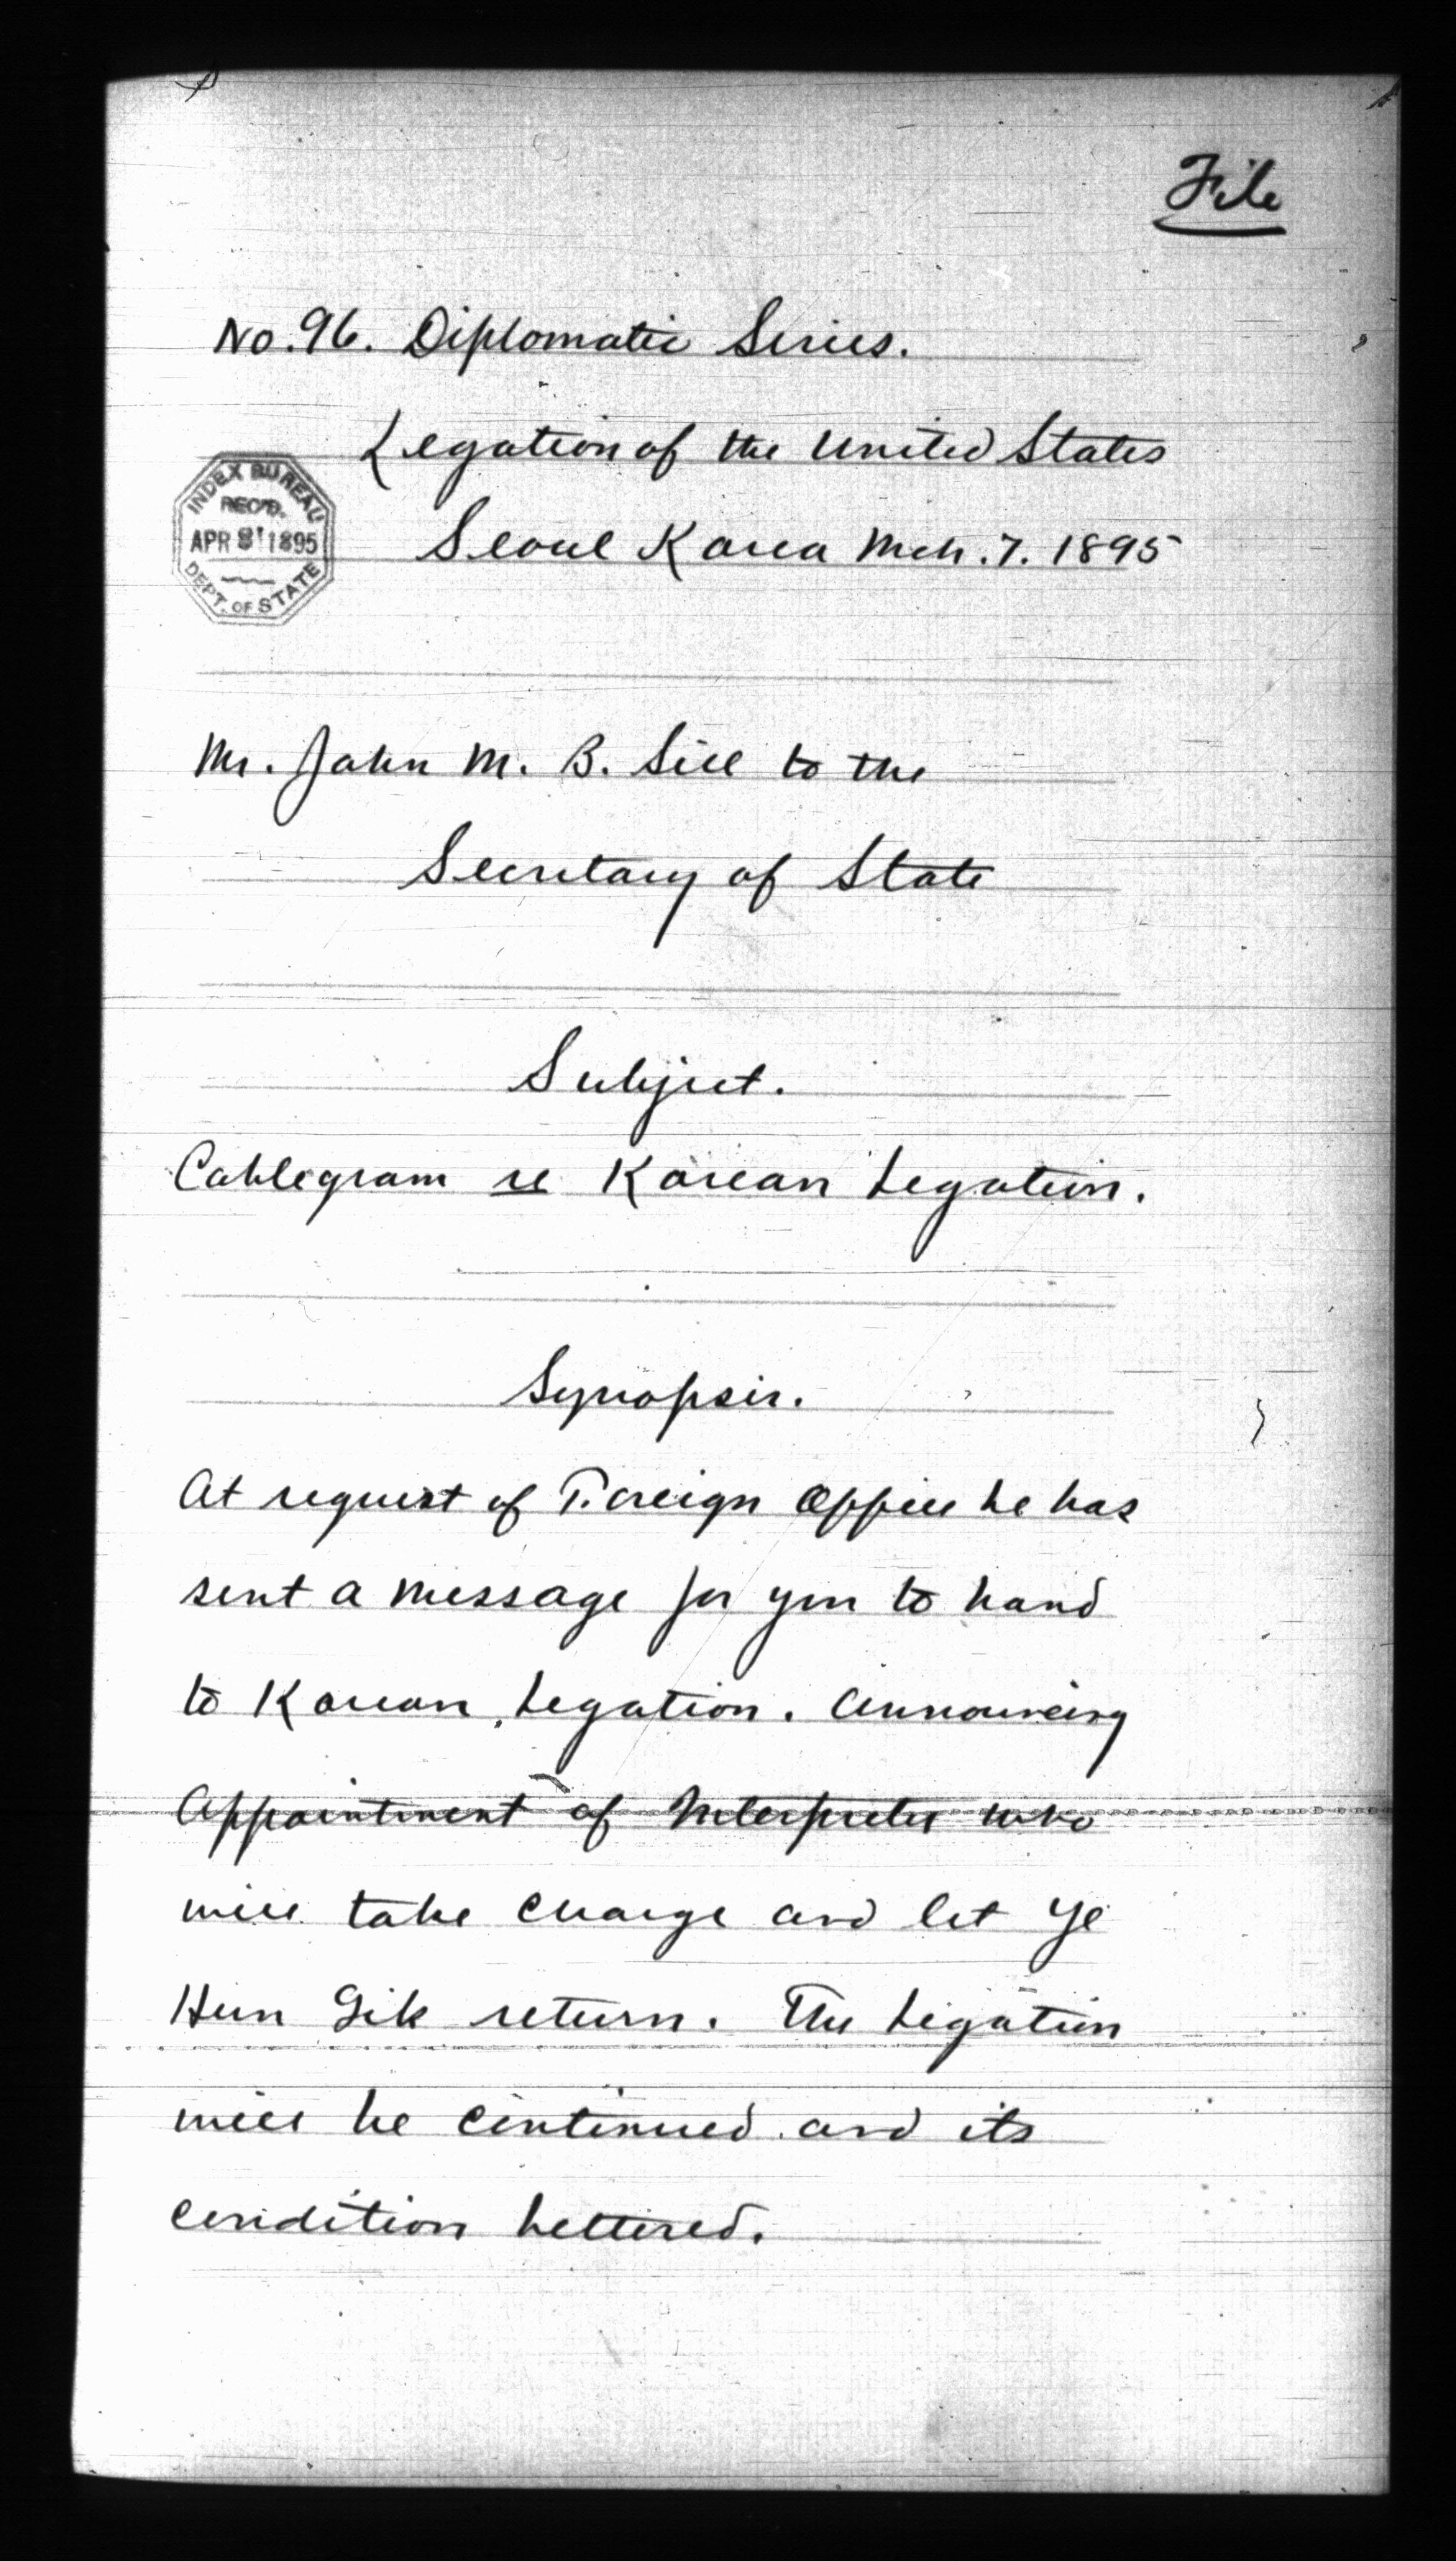 File
No. 96. Diplomatic Series.
Legation of the United States
Seoul Korea Mch. 7. 1895
INDEX BUREAU
REC'D.
APR 1895
DEPT. OF STATE
Mr. John M. B. Sill to the
Secretary of State
Subject.
Cablegram re Korean Legation.
Synopsis.
At request of Foreign Office he has
sent a message for you to hand
to Korean Legation. Announcing
Appointment of Interpreter who
will take charge and let Ye
Hun Sik return. The Legation
will be continued and its
condition bettered.